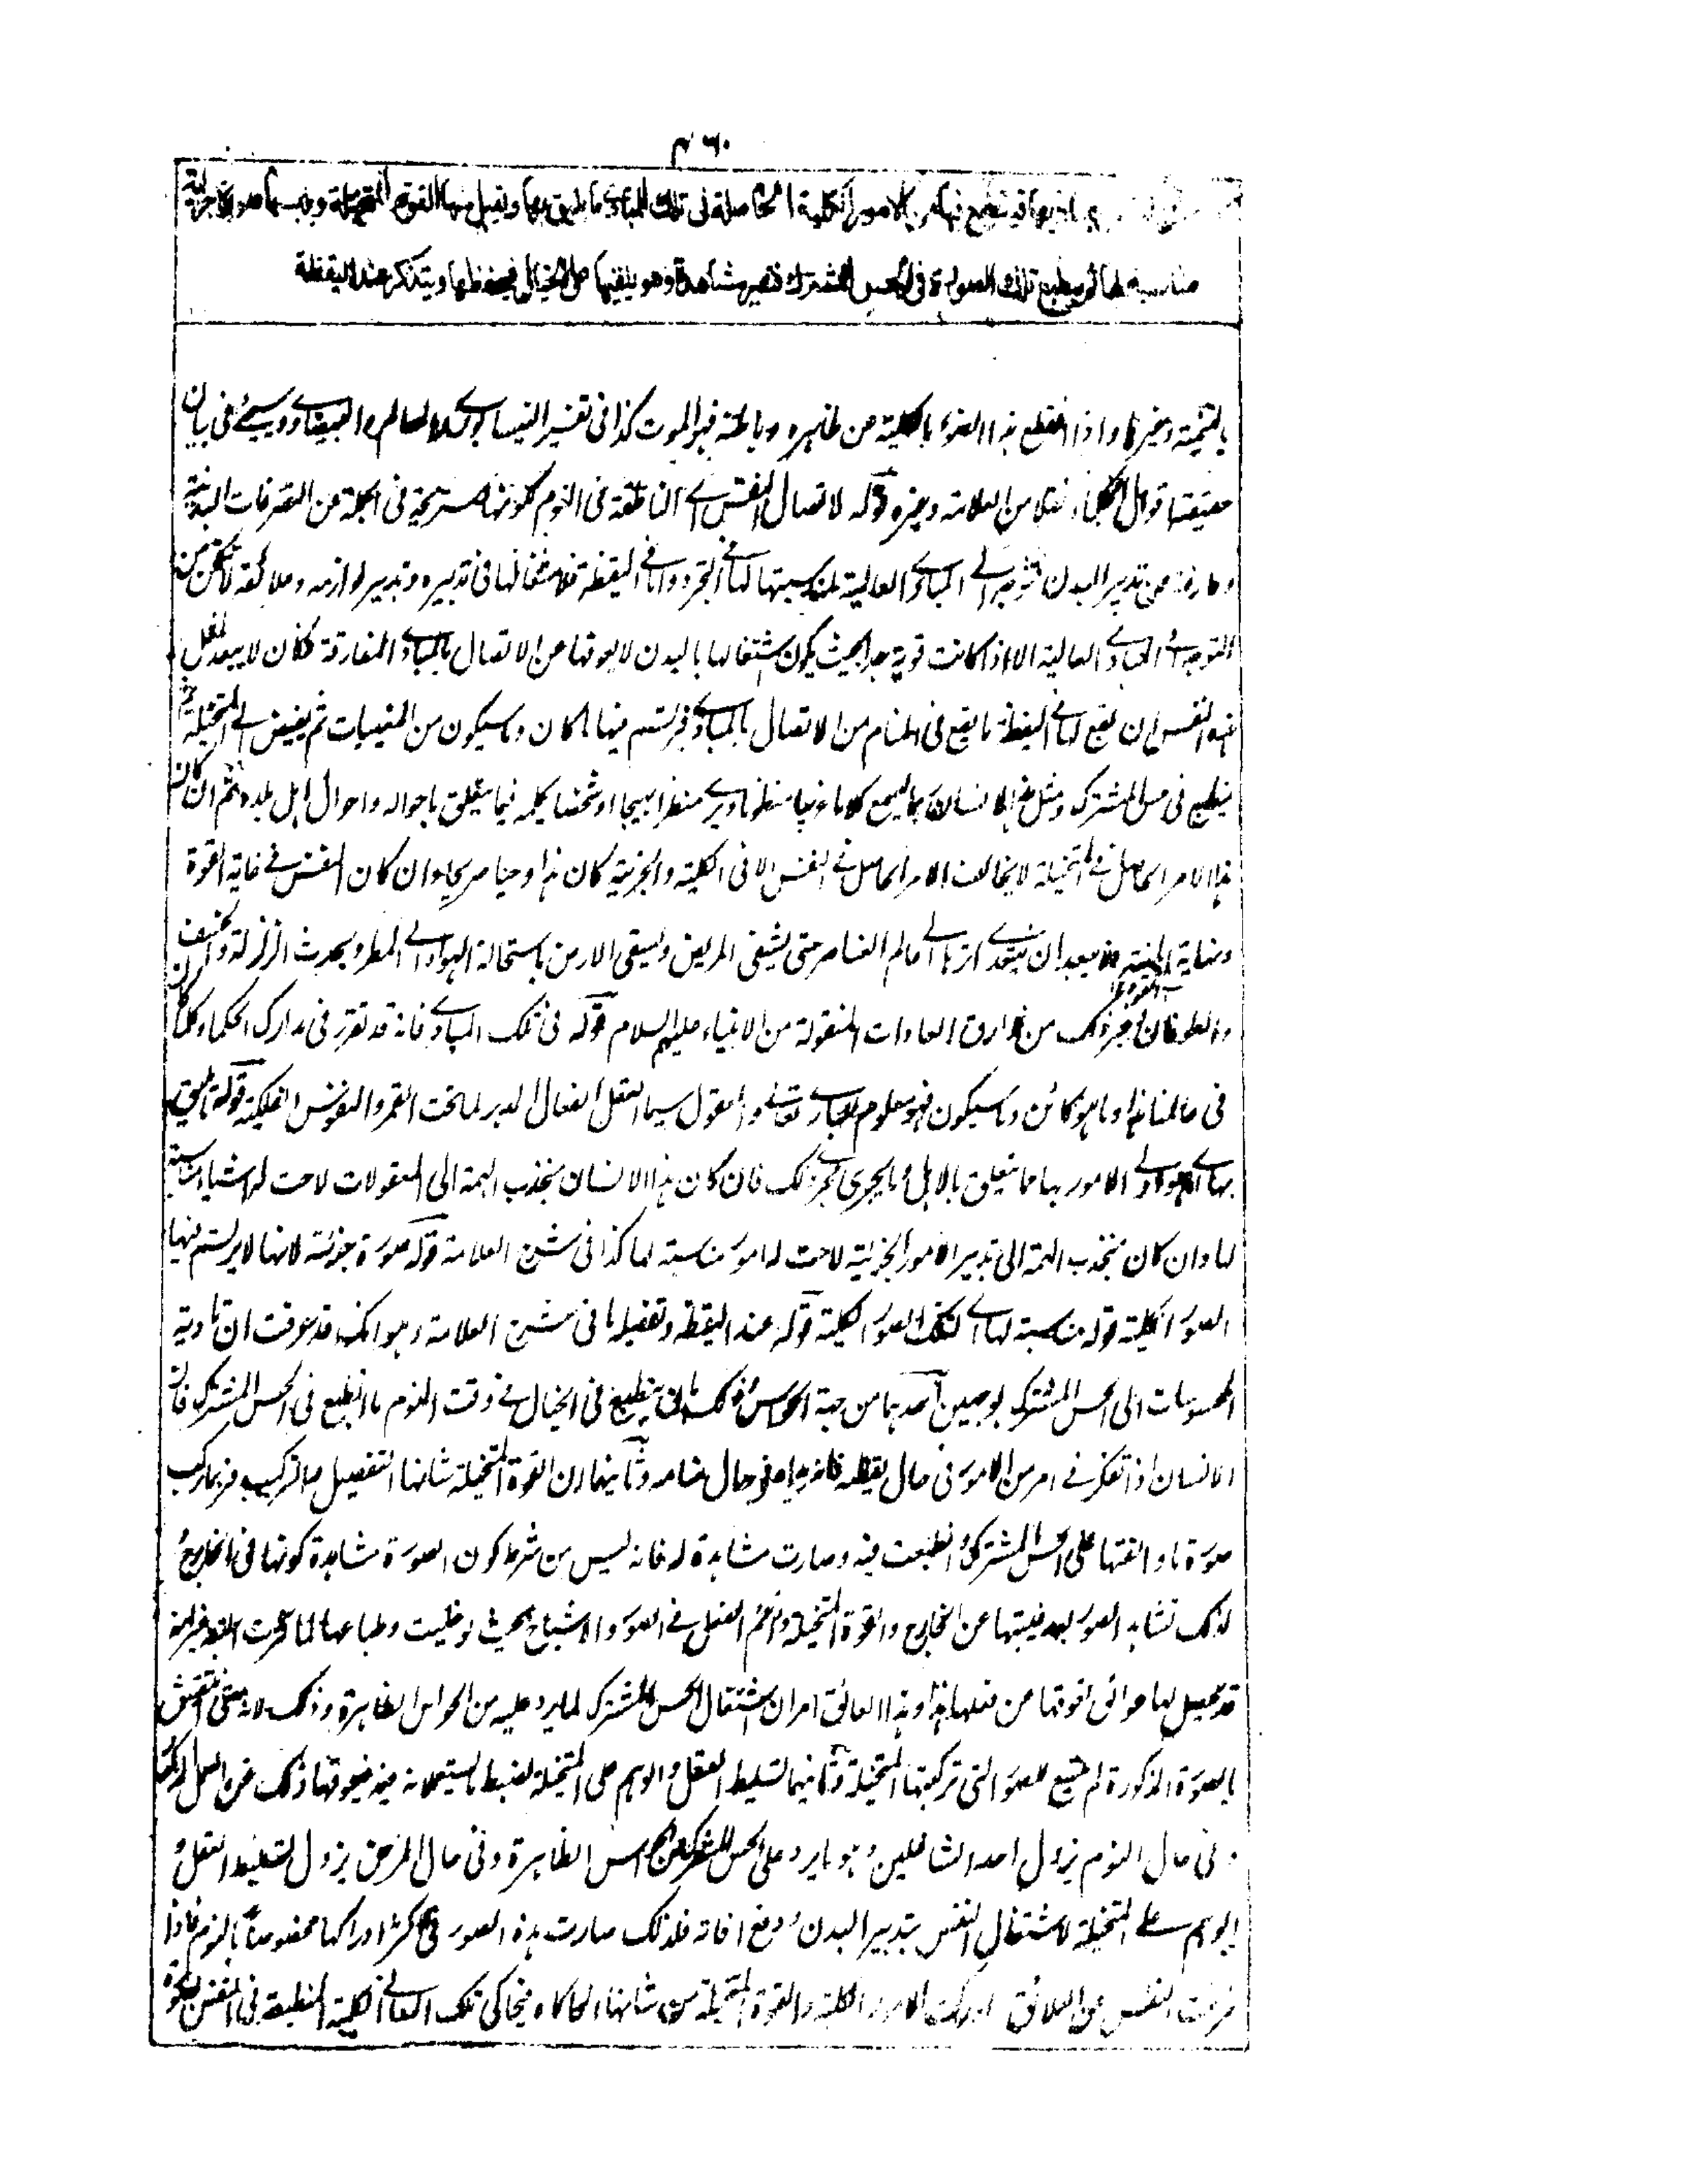 ٤٦٠
فينطبع فيها من الامور الكلية الحاصلة فى تلك المبادى ما يليق بها ويقبل منها القوة المتخيلة صورة جزئية
مناسبة لها ثم ينطبع تلك الصورة فى الحس المشترك فتصير مشاهدة وهو يلقيها على الخيال فيحفظها ويتذكر عند اليقظة
وغيرها واذا انقطع هذا الضوء بالكلية من ظاهره وباطنه فهو الموت كذا فى تفسير النيسابورى والمعالم والبيضاوى وسيجئ فى بيان
حقيقتها قوال الحكماء نقلا من العلامة وغيره قوله لاتصال النفس اے الناطقة فى النوم لكونها مستريحة فى الجملة من التصرفات البدنية
وفارغة من تدبير البدن فتوجه الے المبادى العالية لمناسبتها لها فے التجرد واما فے اليقظة فلاشتغالها فى تدبيره وتدبير لوازمه وعلائقه لا تتمكن من
التوجه الے المبادى العالية الا اذا كانت قوية جدا بحيث يكون اشتغالها بالبدن لا يعوقها من الاتصال بالمبادى المفارقة فكان لا يبعد لمثل
هذه النفس ان يقع لها فے اليقظة ما يقع فى المنام من الاتصال بالمبادى فيرتسم فيها ما كان وما سيكون من المغيبات ثم يفيض الے المتخيلة ثم
ينطبع فى حس المشترك ومثل هذا الانسان ربما يسمع كلاما غريبا منظوما ويرے منظرا بهيجا او شخصا يكلمه فيما يتعلق باحواله واحوال اهل بلده ثم ان كان
هذا الامر الحاصل فے المتخيلة لا يخالف الامر الحاصل فے النفس الا فى الكلية والجزئية كان هذا وحيا صريحا وان كان النفس فے غاية القوة
ونهاية فلا يبعد ان يتعدے اثرها الے عالم العناصر حتى يشفى المريض ويسقى الارض باستحالة الهواء الے المطر ويحدث الزلزلة والخسف
والطوفان وغير ذلك من خوارق العادات المنقولة من الانبياء عليهم السلام قوله فى تلك المبادى فانه قد تقرر فى مدارك الحكماء ان كلما
فى عالمنا هذا وما هو كائن وما سيكون فهو معلوم للبارى تعالے والعقول سيما العقل الفعال المدبر لما تحت القمر والنفوس الفلكية قوله ما يليق
بها اے الامور بها مما يتعلق بالاهل وما يجرى مجرے ذلك فان كان هذا الانسان منجذب الهمة الى المعقولات لاحت له اشياء مناسبة
لها وان كان منجذب الهمة الى تدبير الامور الجزئية لاحت له امور مناسبة لها كذا فى شرح العلامة قوله صورة جزئية لانها لا يرتسم فيها
الصور الكلية قوله مناسبة لها اے لتلك الصور الكلية قوله عند اليقظة وتفصيله ما فى شرح العلامة وهو انك قد عرفت ان تادية
المحسوسات الى الحس المشترك بوجهين احدهما من جهة الحواس ينطبع فى الخيال فے وقت النوم ما انطبع فى الحس المشترك فان
الانسان اذا تفكر فے امر من الامور فى حال يقظة فانه يراه فى حال منامه وثانيهما ان القوة المتخيلة شانها التفصيل والتركيب فربما ركب
صورة ما والقتها على الحس المشترك وانطبعت فيه وصارت مشاهدة له فانه ليس من شرط كون الصورة مشاهدة كونها فى الخارج
لذلك تشاهد الصور بعد غيبتها عن الخارج والقوة المتخيلة دائم الفعل فے الصور والاشباح بحيث لو خليت وطباعها لما
قد يحصل لها عوائق تعوقها من فعلها هذا وهذا العائق امران اشتغال الحس المشترك لما يرد عليه من الحواس الظاهرة وذلك لانه متى انتقش
بالصورة المذكورة لم تتسع للصور التى تركبها المتخيلة وثانيهما تسليط العقل والوهم على المتخيلة لضبط ما يستعملانه فيه فيعوقها ذلك عن العمل
وفى حال النوم يزول احد الشاغلين وهو ما يرد على الحس المشترك من الحواس الظاهرة وفى حال المرض يزول تسليط العقل و
الوهم علے المتخيلة لاشتغال النفس بتدبير البدن ودفع افاته فلذلك صارت هذه الصور فى اكثر ادراكها مخصوصا بالنوم فاذا
فرغت النفس عن العلائق ادركت الامور الكلية والقوة المتخيلة من شانها المحاكاة فيحاكى تلك المعانے الكلية المنطبعة فى النفس